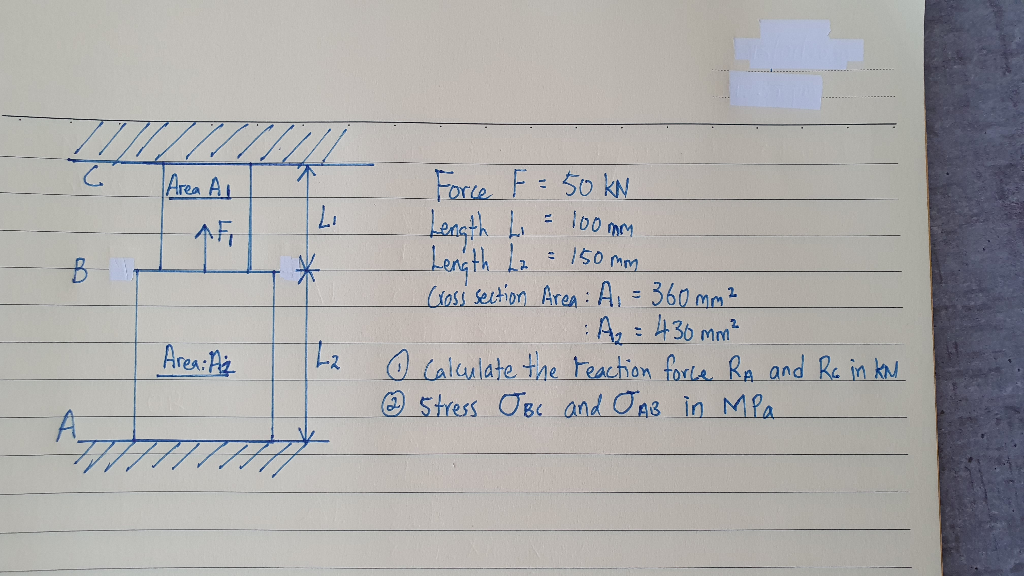 C
Area A1
F1
L1
B
Area: A2
L2
A
Force F = 50 kN
Length L1 = 100 mm
Length L2 = 150 mm
Cross section Area : A1 = 360 mm²
: A2 = 430 mm²
① Calculate the reaction force RA and Rc in kN
② Stress σBC and σAB in MPa